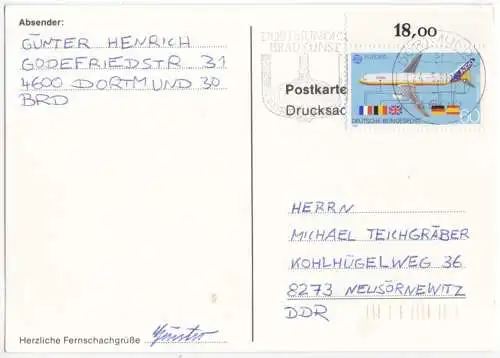 Absender:
GÜNTER HENRICH
GODEFRIEDSTR 31
4600 DORTMUND 30
BRD
18,00
Postkarte
Drucksac
EUROPA
60
DEUTSCHE BUNDESPOST
HERRN
MICHAEL TEICHGRÄBER
KOHLHÜGELWEG 36
8273 NEUSÖRNEWITZ
DDR
Herzliche Fernschachgrüße